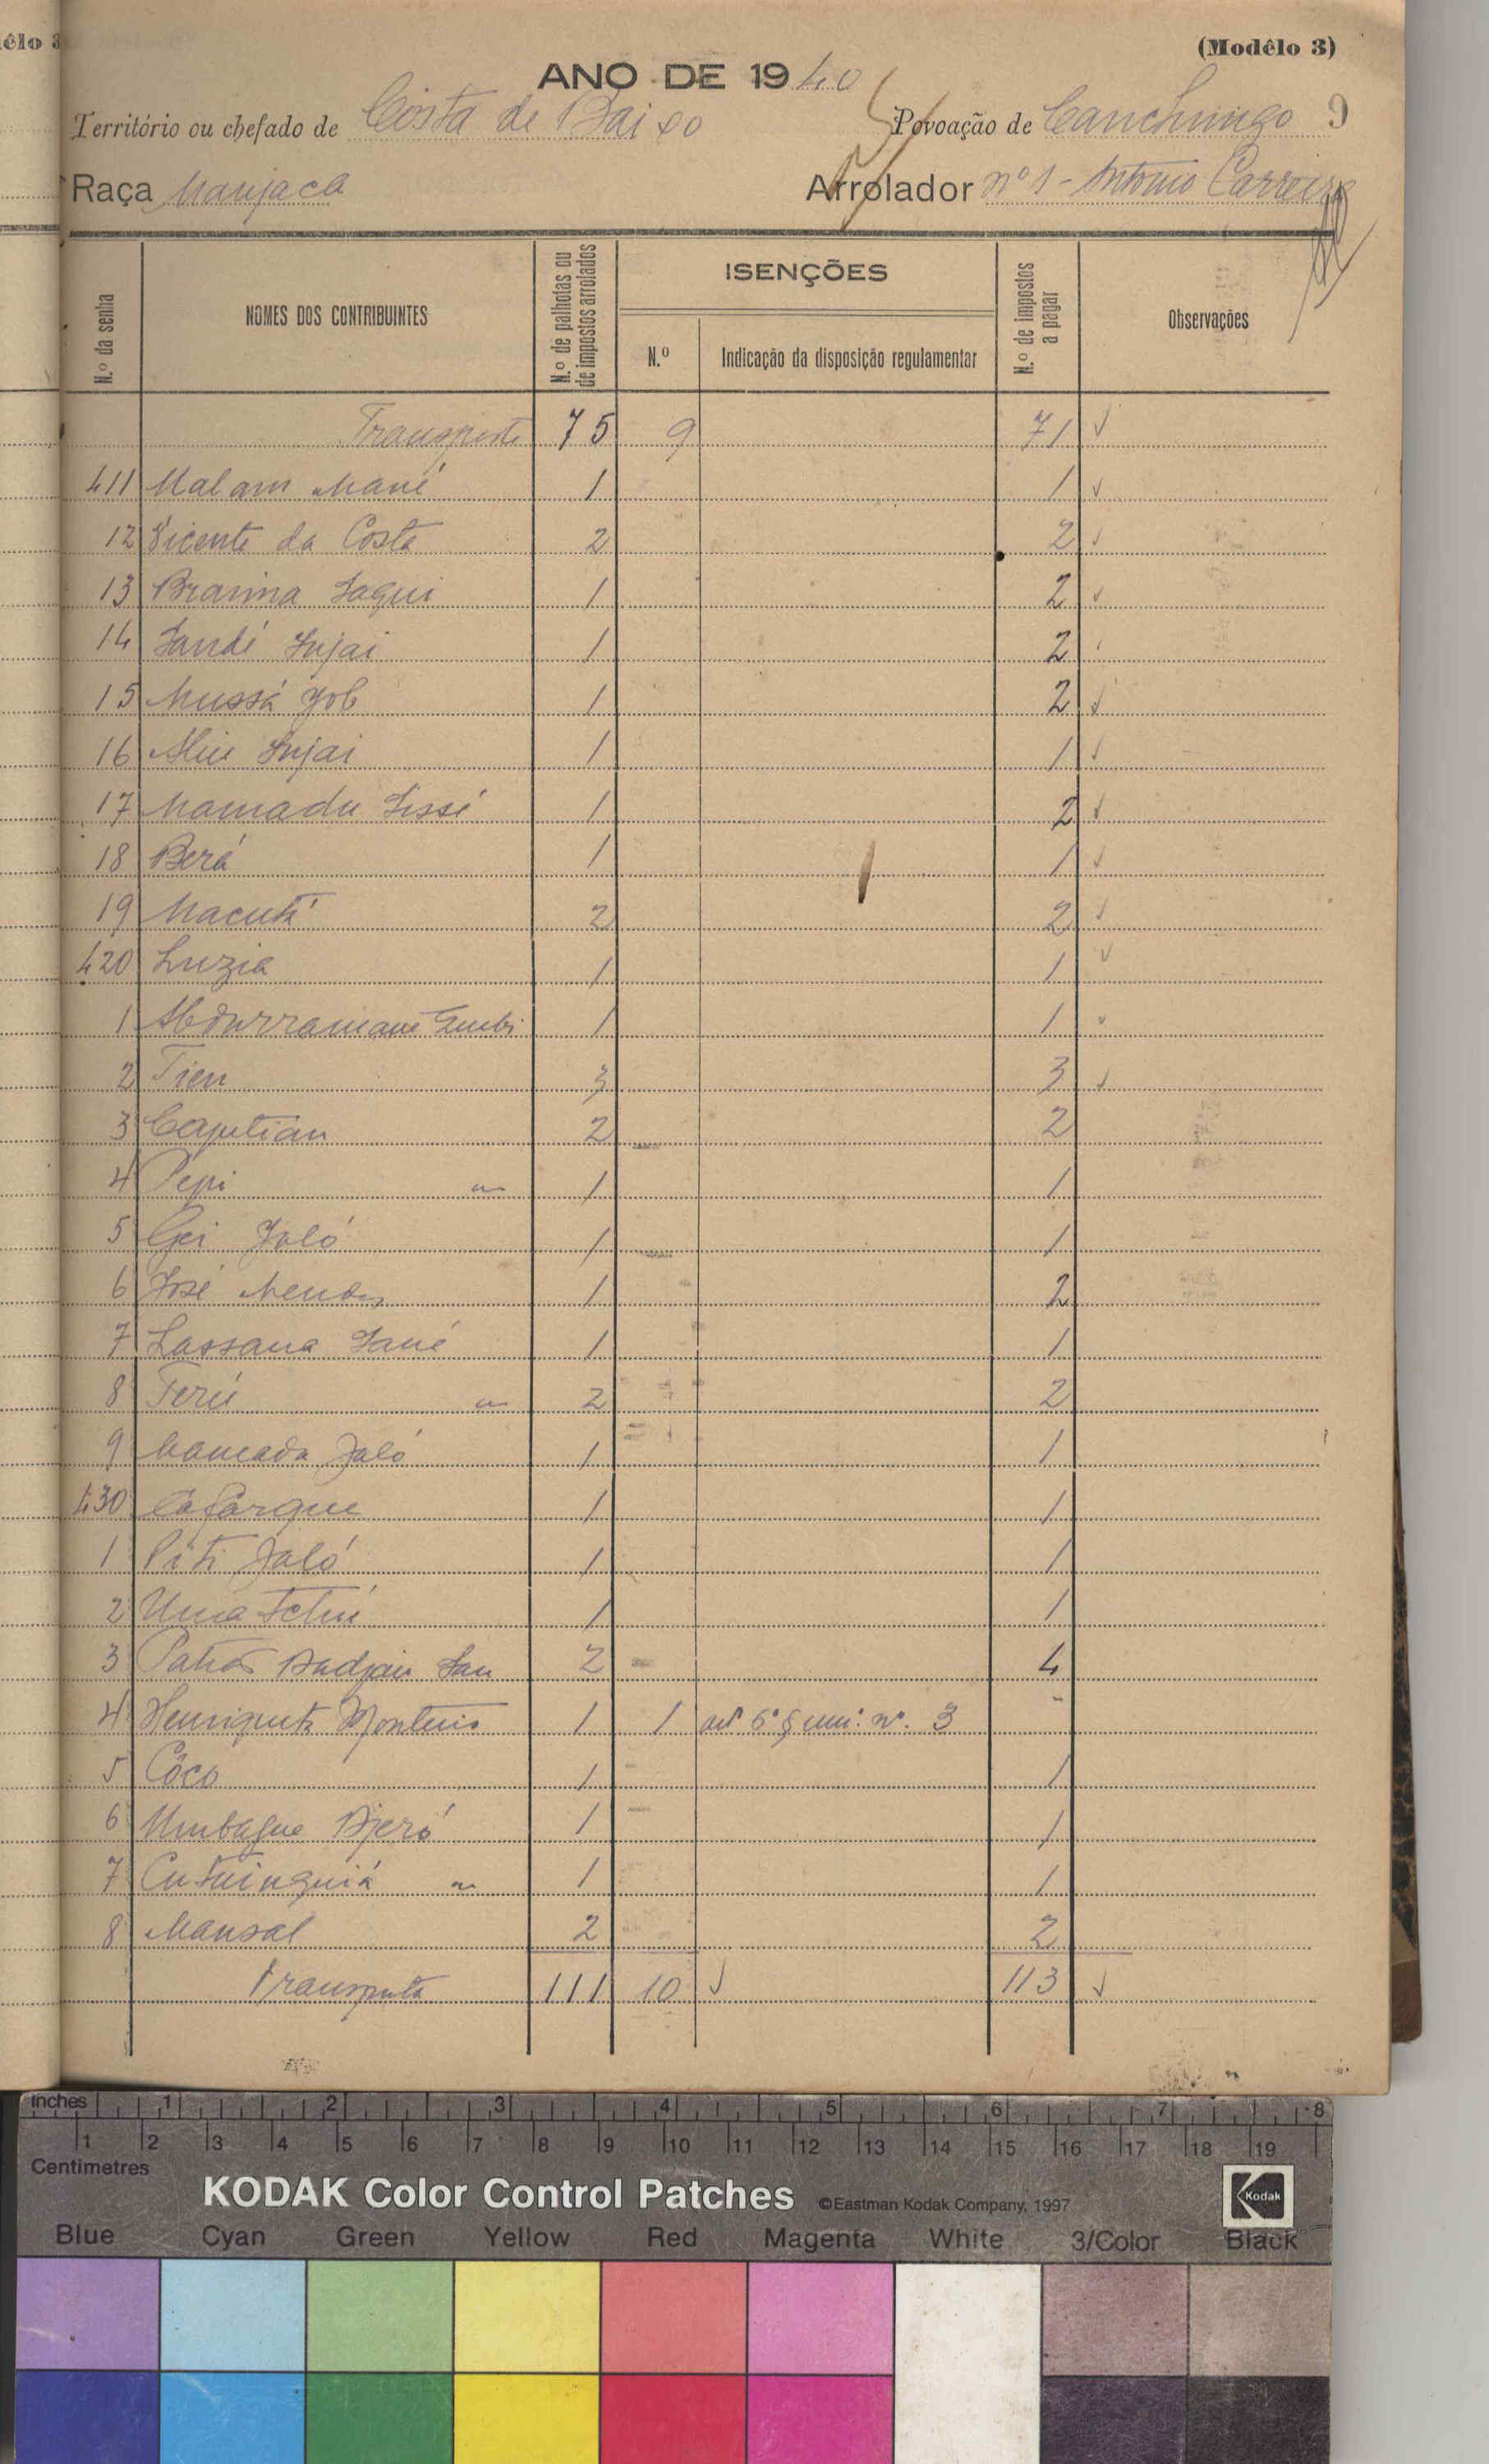 êlo 3
(Modêlo 3)
ANO DE 1940
Território ou chefado de Costa de Baixo Povoação de Canchungo 9
Raça Manjaca Arrolador nº 1 - António Carreira
N.º da senha
NOMES DOS CONTRIBUINTES
N.º de palhotas ou de impostos arrolados
ISENÇÕES
N.º
Indicação da disposição regulamentar
N.º de impostos a pagar
Observações
Transporte 75 9 71 ✓
411 Malam Mané 1 1 ✓
12 Vicente da Costa 2 2 ✓
13 Braima Sagui 1 2 ✓
14 Sandé Injai 1 2
15 Mussá Job 1 2 ✓
16 Aliu Injai 1 1 ✓
17 Mamadu Sissé 1 2 ✓
18 Berá 1 1 ✓
19 Macuti 2 2 ✓
420 Luzia 1 1 ✓
1 Abdurramane 1 1 ✓
2 Tien 3 3 ✓
3 2 2
4 Pepi 1 1
5 Gei Jaló 1 1
6 José Mendes 1 2
7 Lassana Sané 1 1
8 Feru 2 2
9 Mamadu Jaló 1 1
430 Cafargue 1 1
1 Piti Jaló 1 1
2 Uma 1 1
3 2 4
4 Henriqueta Monteiro 1 1 artº 6º § uni: nº. 3 -
5 Côco 1 1
6 Umbague Djeró 1 1
7 1 1
8 Mansal 2 2
Transporte 111 10 ✓ 113 ✓
inches 1 2 3 4 5 6 7 8
1 2 3 4 5 6 7 8 9 10 11 12 13 14 15 16 17 18 19
Centimetres
KODAK Color Control Patches ©Eastman Kodak Company, 1997 Kodak
Blue Cyan Green Yellow Red Magenta White 3/Color Black